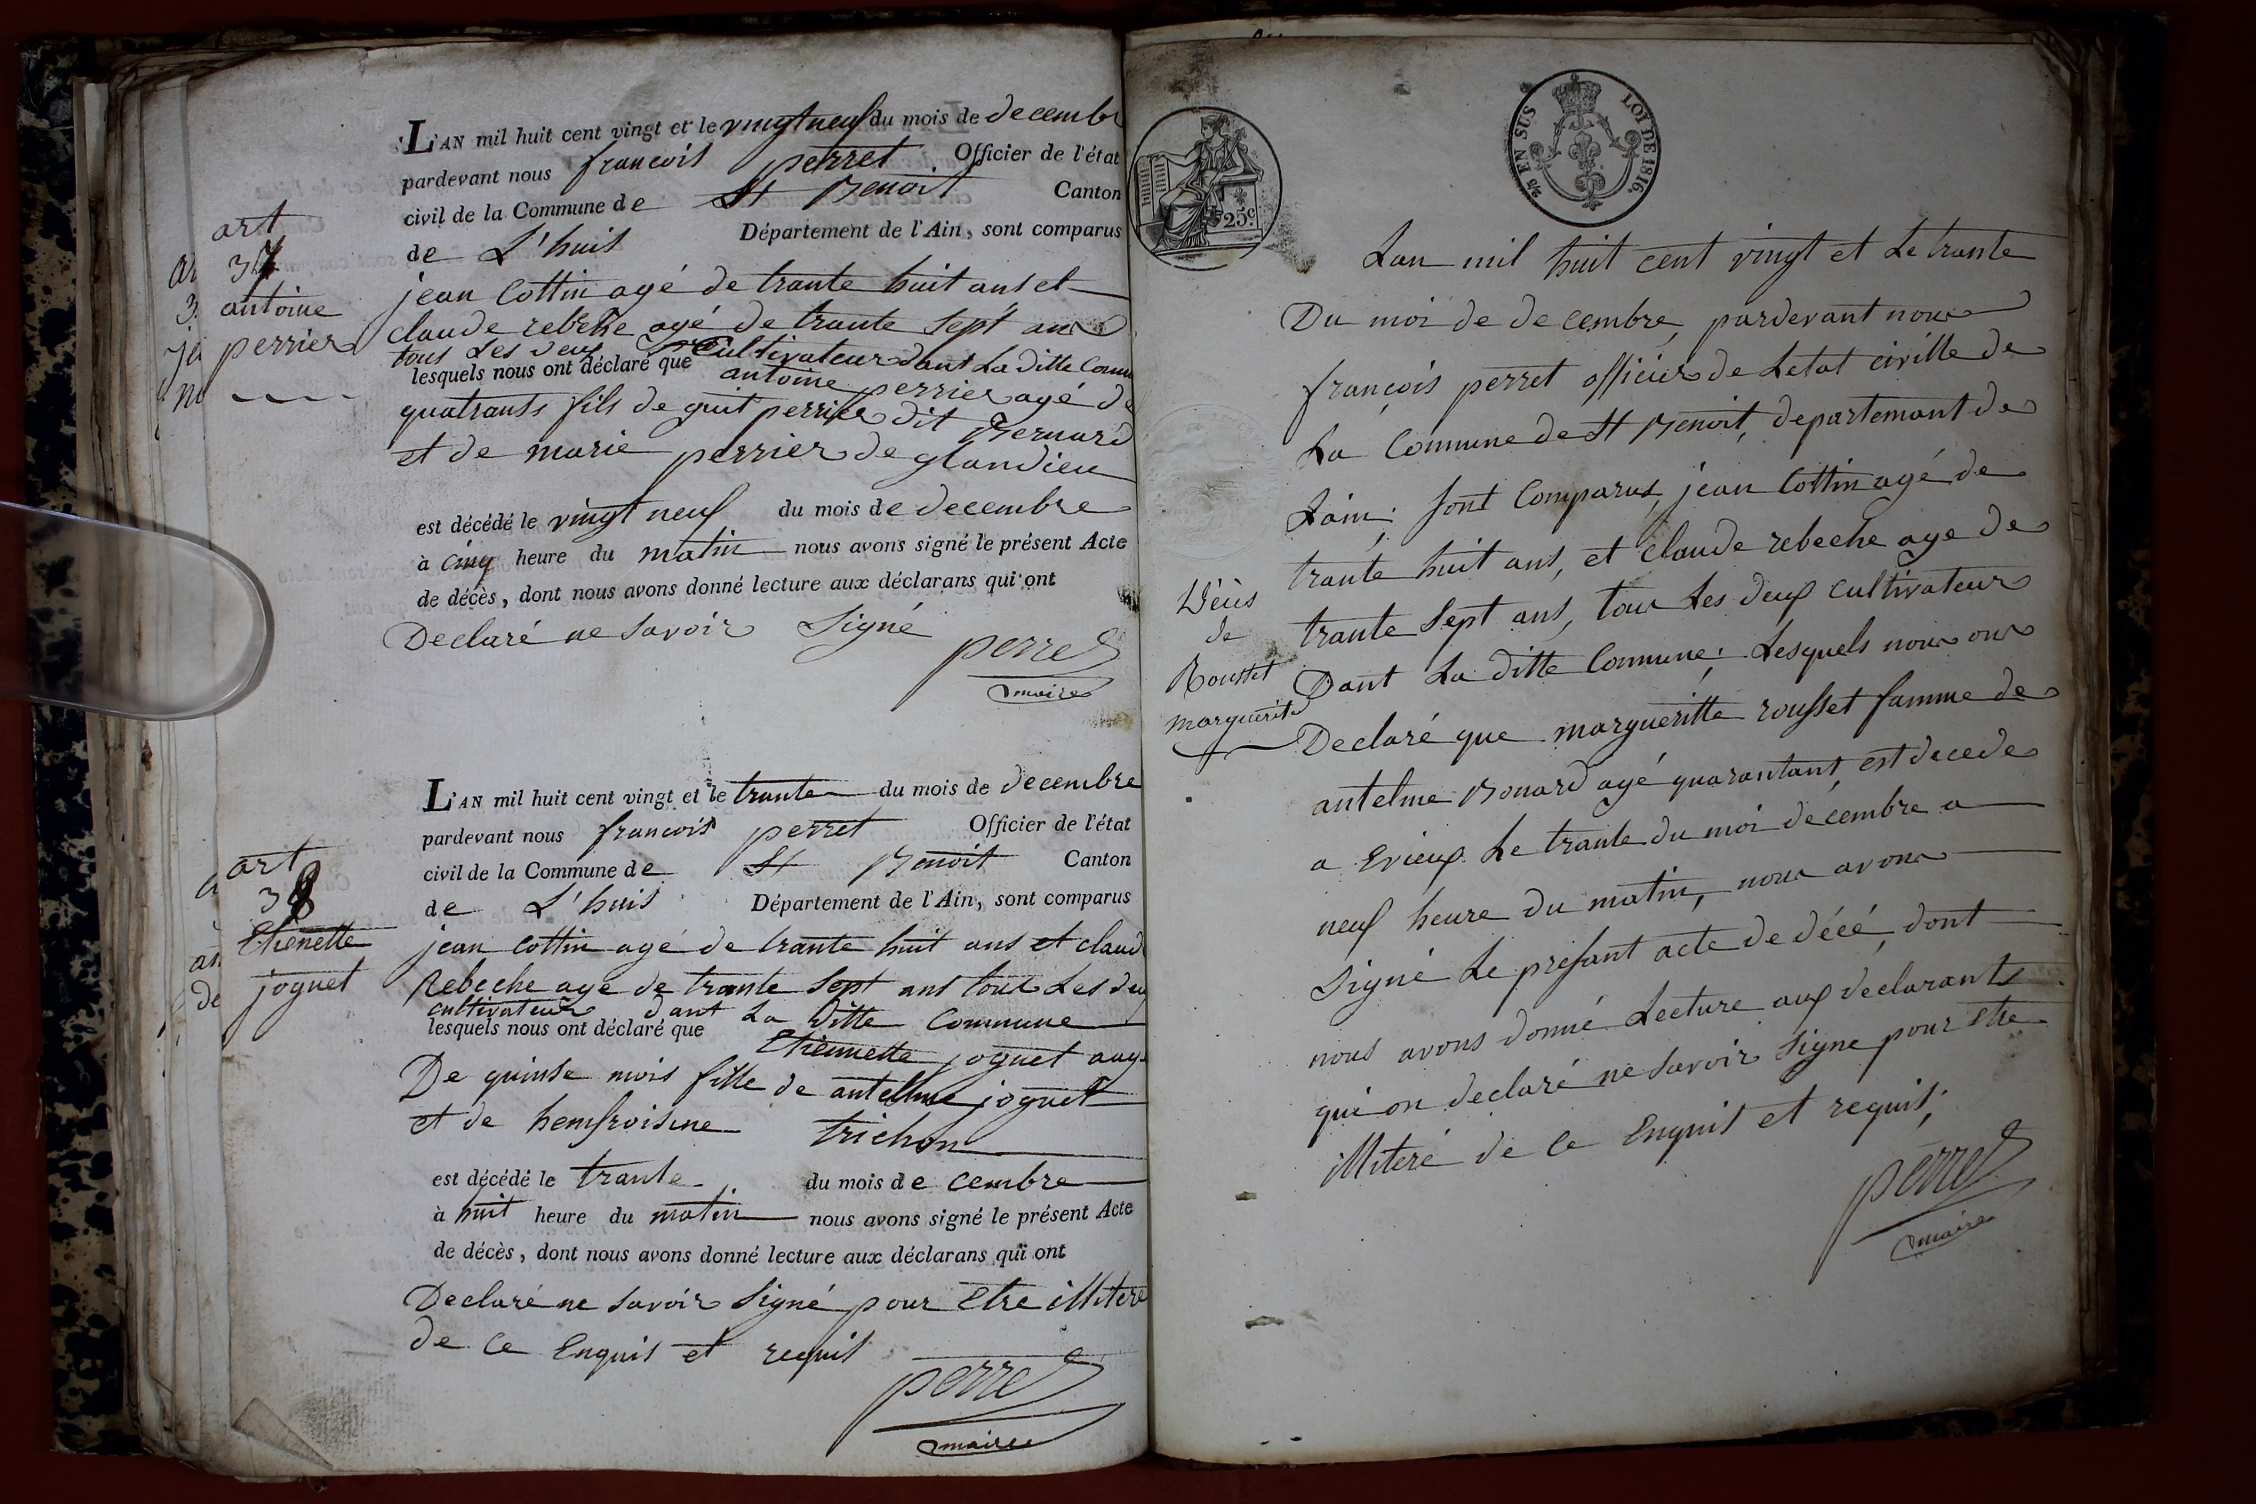 art
37
antoine
perrier
L'AN mil huit cent vingt et le vingt neuf du mois de decembr
pardevant nous francois perret Officier de l'état
civil de la Commune de St Benoit Canton
de L'huis Département de l'Ain, sont comparus
jean Cottin agé de trante huit ans et
claude rebeche agé de trante Sept ans
tous Les deux Cultivateur dant La ditte Comm
lesquels nous ont déclaré que antoine perrier agé de
quatrants fils de guit perrier dit Bernard
et de marie perrier de glandieu
est décédé le vingt neuf du mois de decembre
à cinq heure du matin nous avons signé le présent Acte
de décès, dont nous avons donné lecture aux déclarans qui ont
Declaré ne Savoir Signé
perret
maire
art
38
Etienette
joguet
L'AN mil huit cent vingt et le trante du mois de decembre
pardevant nous francois perret Officier de l'état
civil de la Commune de St Benoit Canton
de L'huis Département de l'Ain, sont comparus
jean Cottin agé de trante huit ans et claud
Rebeche age de trante Sept ans tous Les deu
cultivateur dant La ditte Commune
lesquels nous ont déclaré que Etiennette joguet aug
De quinse mois fille de antelme joguet
et de hemfroisine trichon
est décédé le trante du mois de cembre
à huit heure du matin nous avons signé le présent Acte
de décès, dont nous avons donné lecture aux déclarans qui ont
Declaré ne Savoir Signé pour Etre illiteré
de Ce Enquis et requis
perret
maire
25c.
2/5 EN SUS LOI DE 1816.
Lan mil huit cent vingt et Le trante
Du moi de de cembre, pardevant nous
françois perret officier de Letat civille de
La Commune de St Benoit, departemant de
Lain; sont Comparus, jean Cottin agé de
trante huit ans, et claude rebeche age de
trante Sept ans, tous Les deux cultivateur
Dant La ditte Commune; Lesquels nous on
Décès
de
Rousset
marguerite
Declaré que margueritte rousset famme de
antelme Bonard agé quarantant, est decede
a Evieux Le trante du moi decembre a
neuf heure du matin, nous avons
Signé Le presant acte de décé, dont
nous avons donné Lecture aux declarants
qui on declaré ne Savoir Signe pour etre
illiteré de Ce Enquis et requis;
perret
maire